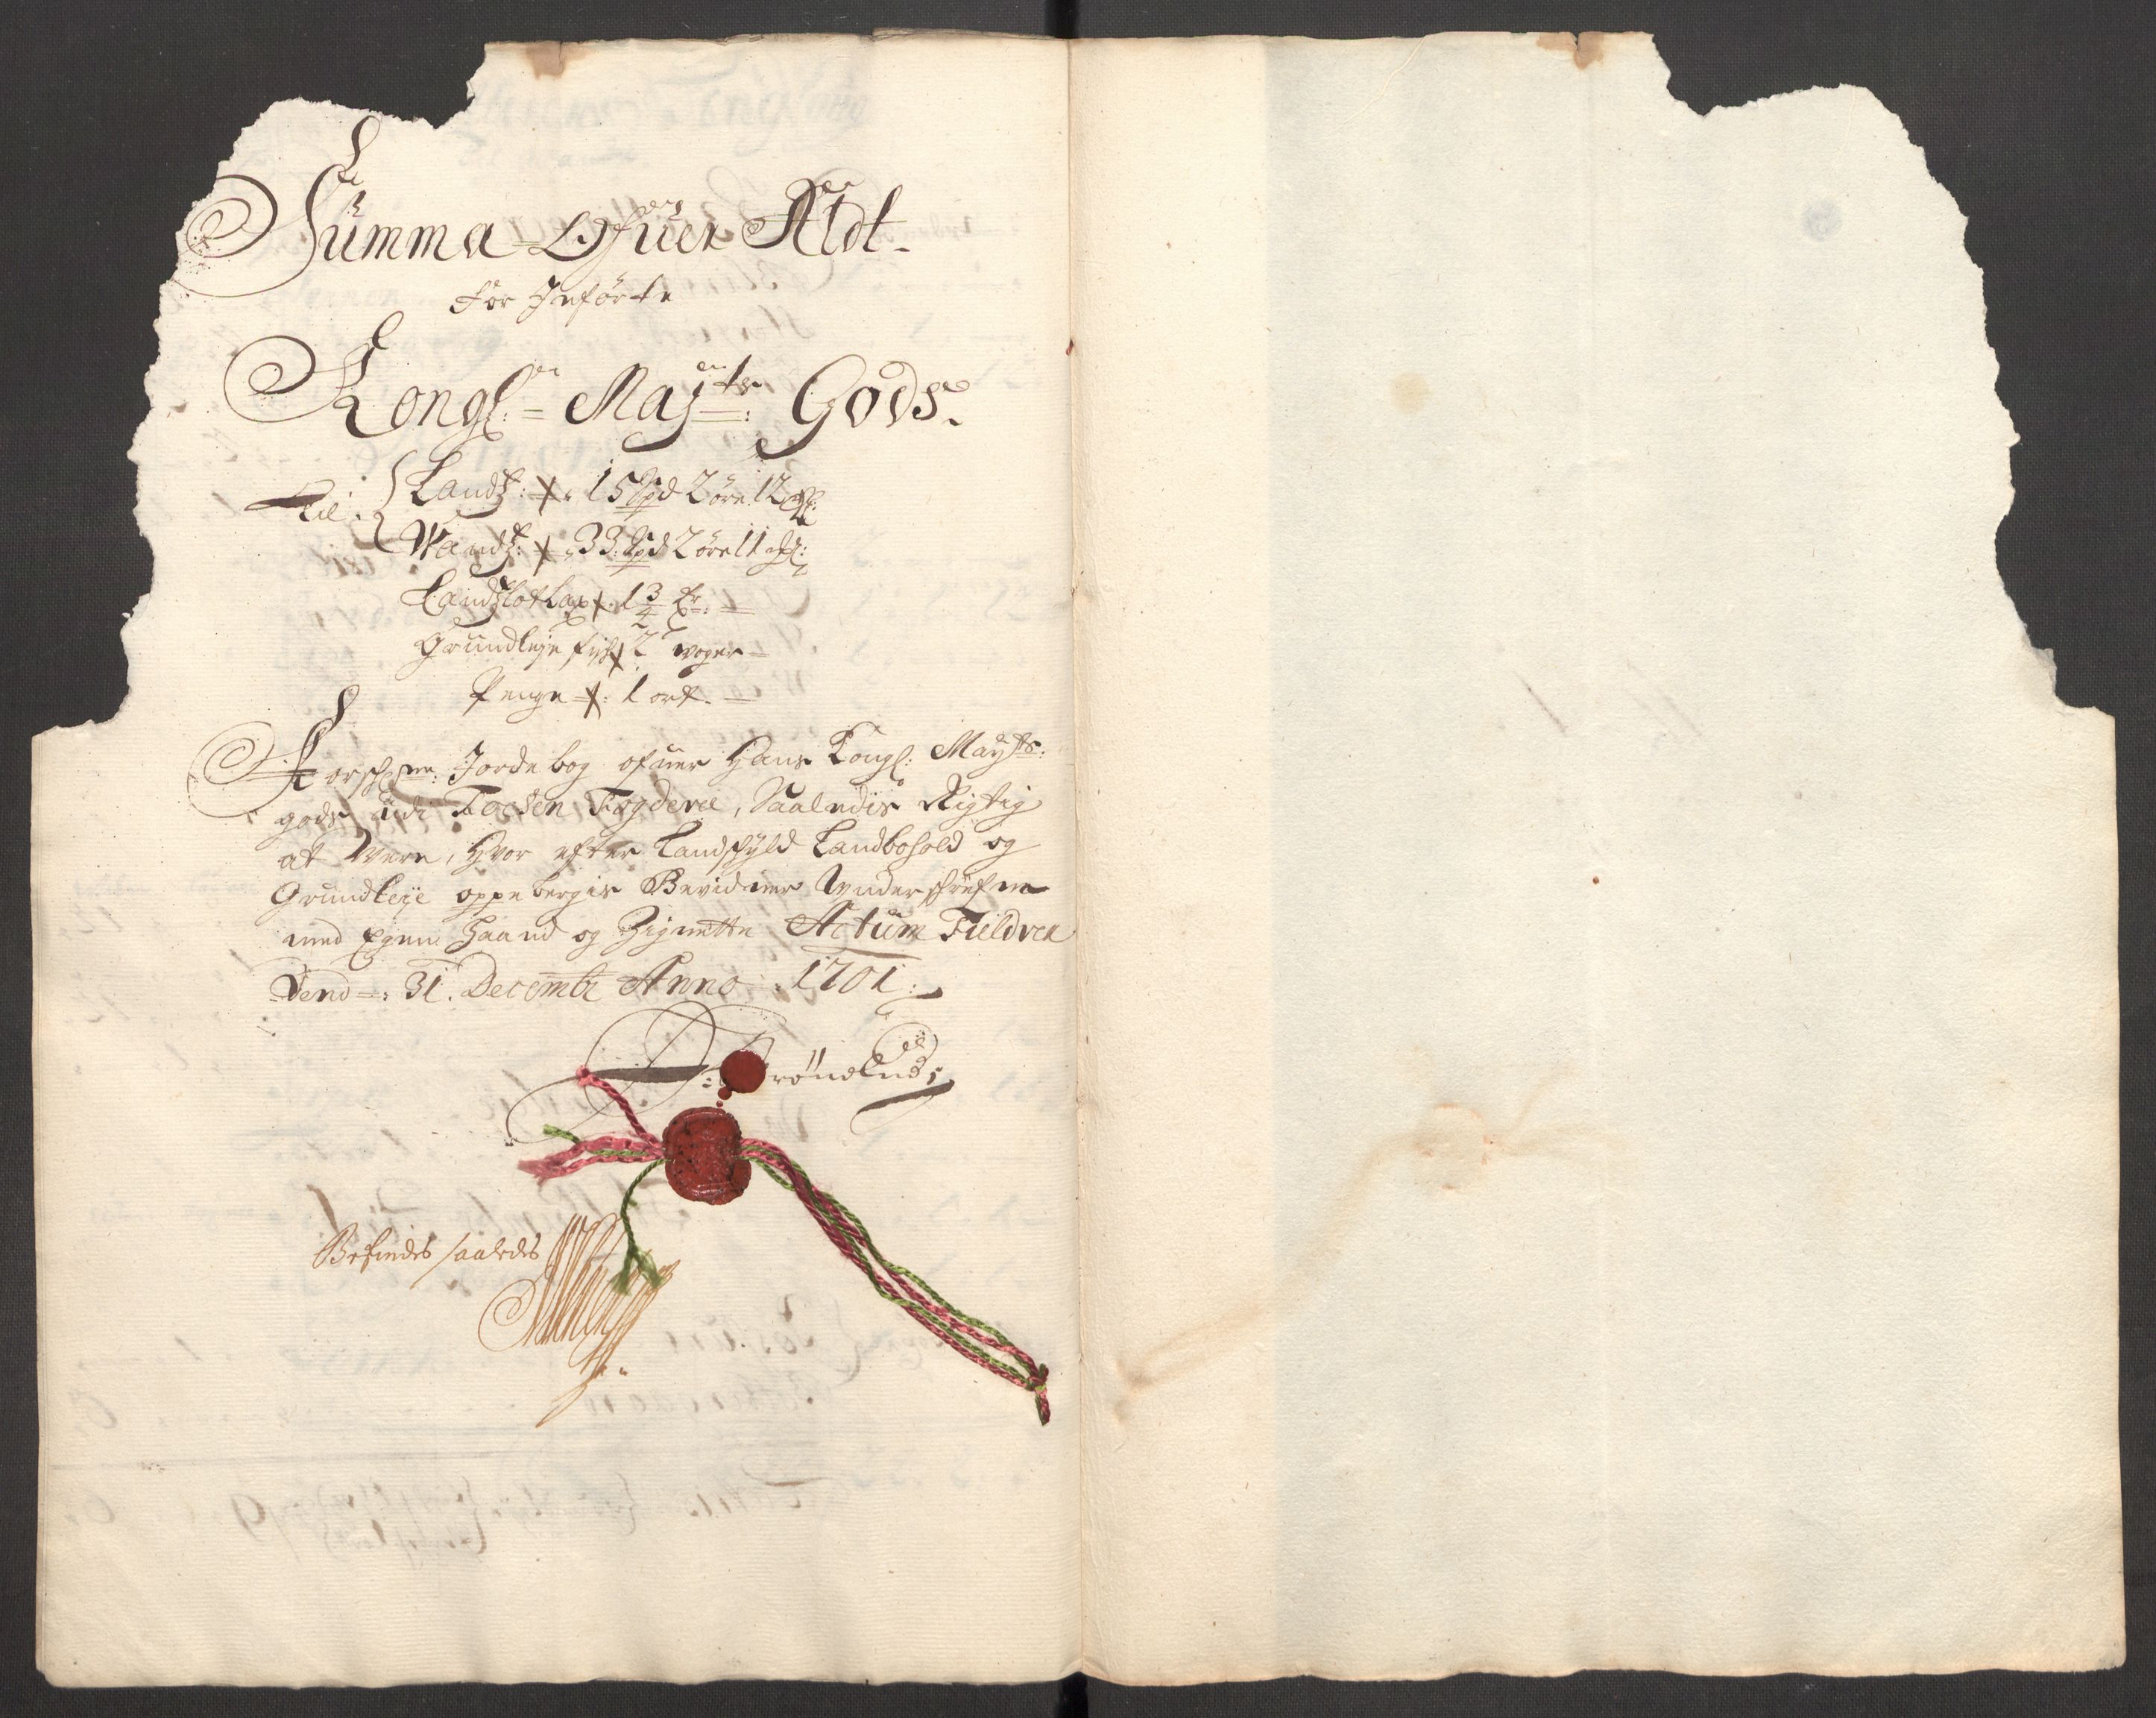 Summa Ofuer Aldt.
for Jnførte
Kongl: Mayts: Gods.
Til: Landsk: 15 Spd 2 øre 12
Wandsk: 33 Spd 2 øre 11
Landslod Lax 1 3/4
Grundleje fisk 2 woger
Penge 1 ort.
Forschrne: Jordebog ofuer Hans Kongl: Mayts:
gods udi Foesen Fogderie, Saaledis Rigtig
at Were, Hvor efter Landskyld Landbohold og
Grundleje oppebergis Bevidner Underskrefne
med Egen Haand og Zignette Actum Fieldvær
Dend: 31. Decembr Anno 1701.
Befindes saaledes